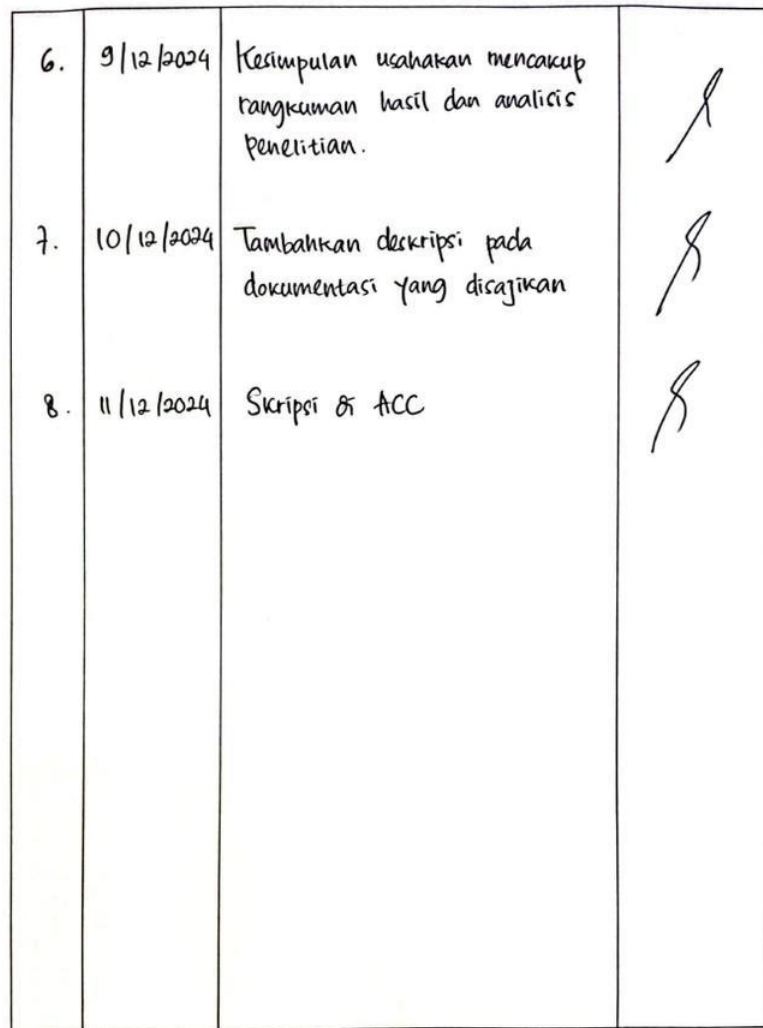 6. 9/12/2024 Kesimpulan usahakan mencakup
rangkuman hasil dan analisis
penelitian.
7. 10/12/2024 Tambahkan deskripsi pada
dokumentasi yang disajikan
8. 11/12/2024 Skripsi di ACC